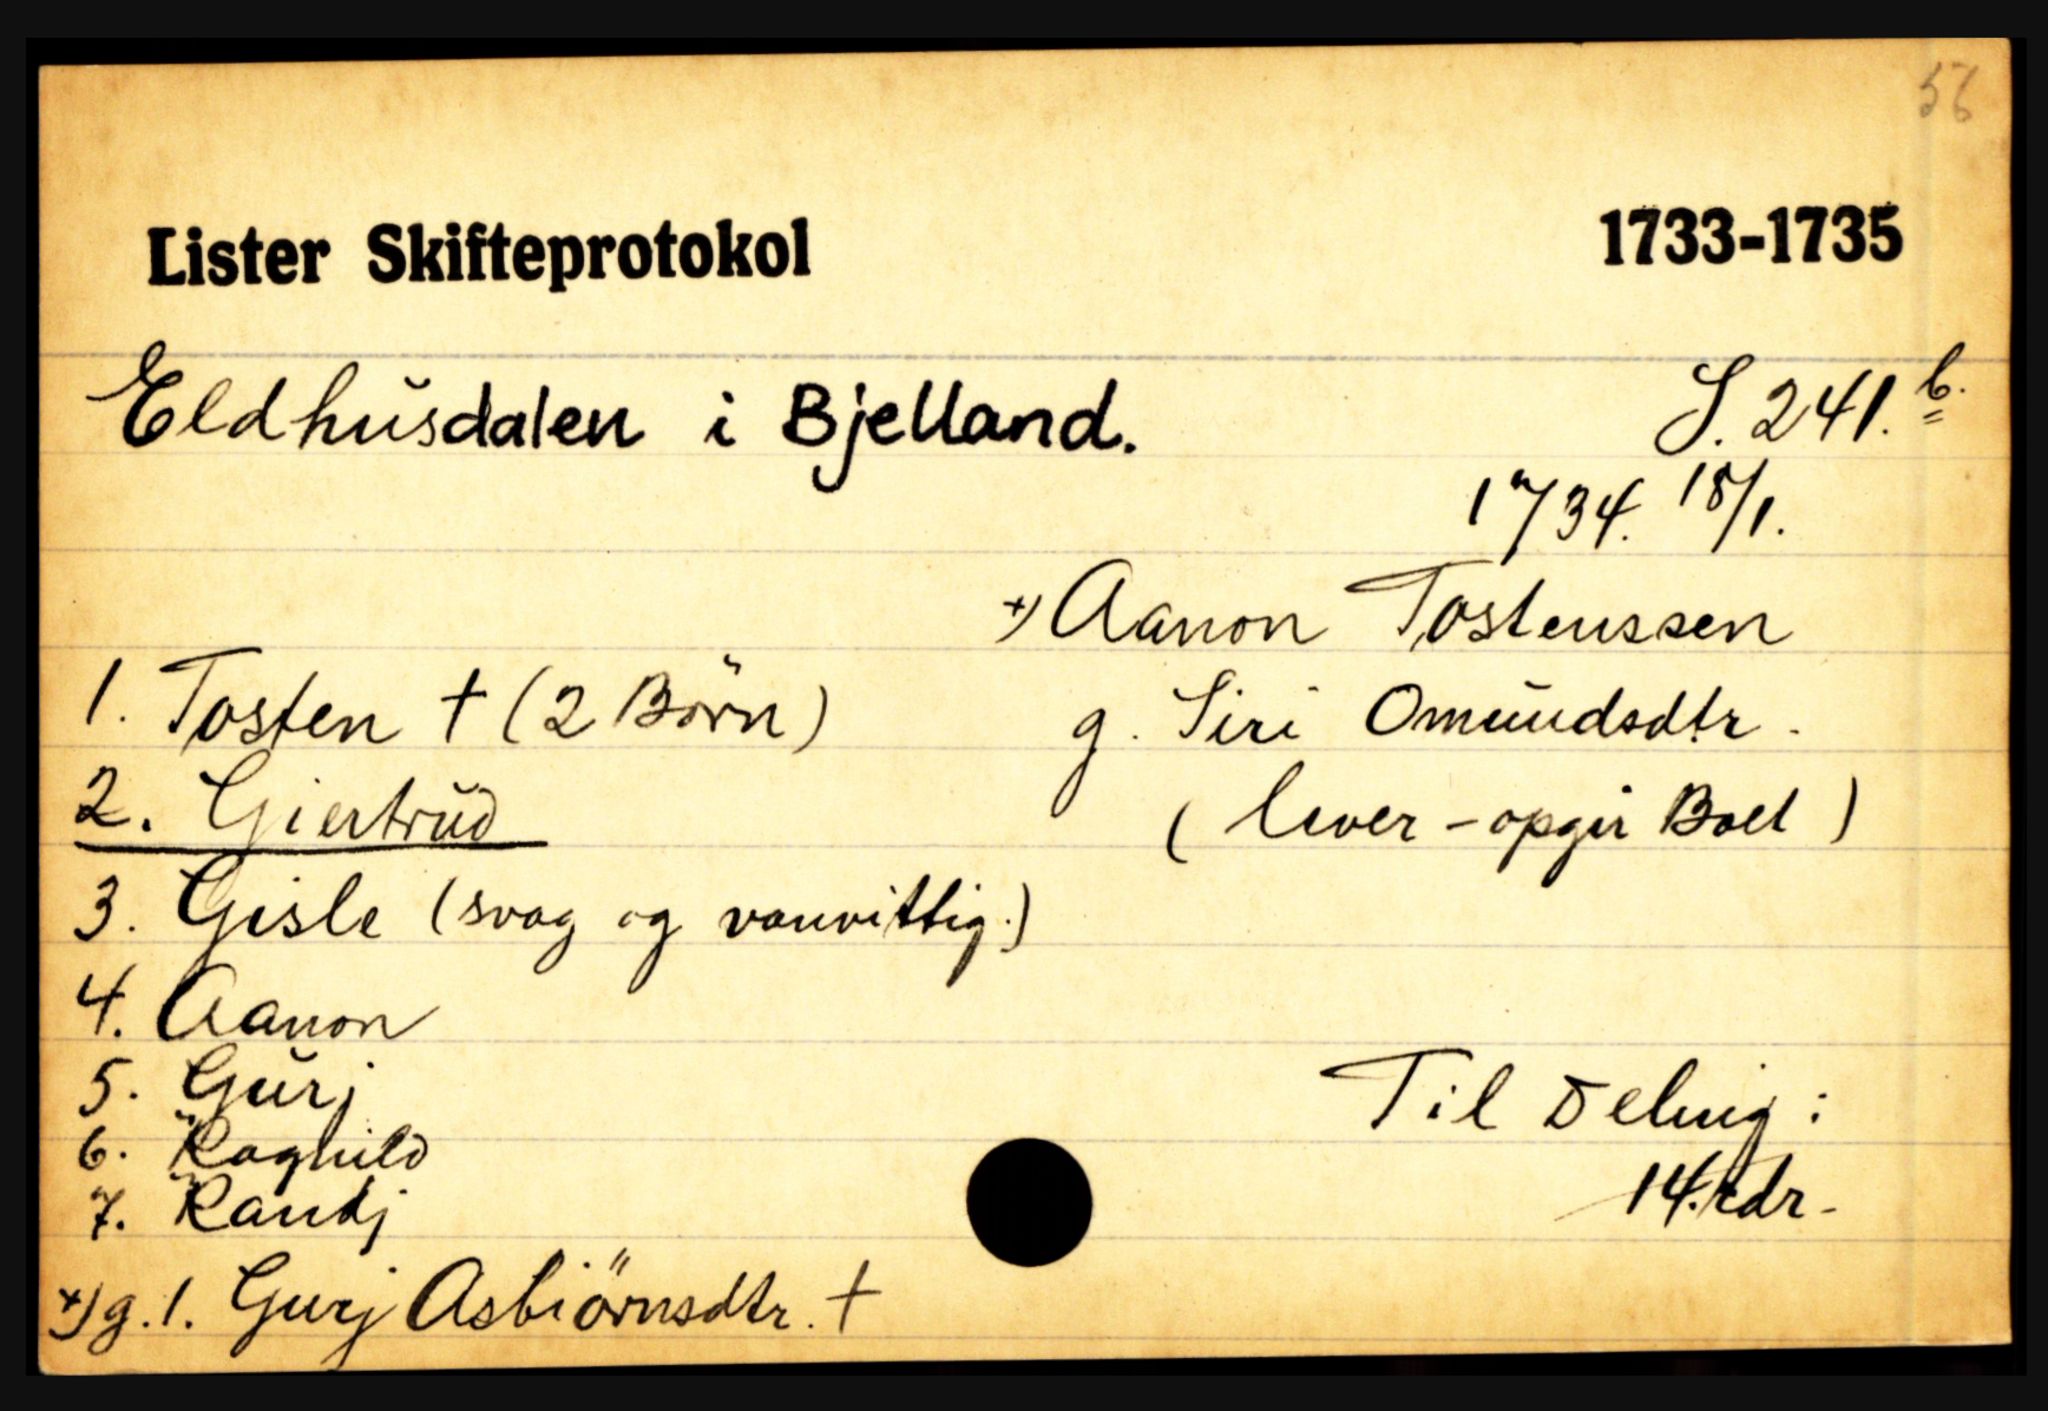 56
Lister Skifteprotokol 1733-1735
Eldhusdalen i Bjelland. S. 241. b.
1734. 18/1.
+) Aanon Tostenssen
1. Tosten † (2 Börn) g. Siri Omundsdtr.
2. Giertrud (lever - opgir Boet)
3. Gisle (svag og vanvittig.)
4. Aanon
5. Gurj Til Deling:
6. Ragnild
7. Randj 14. rdr -
+) g. 1. Gurj Asbiörnsdtr. †